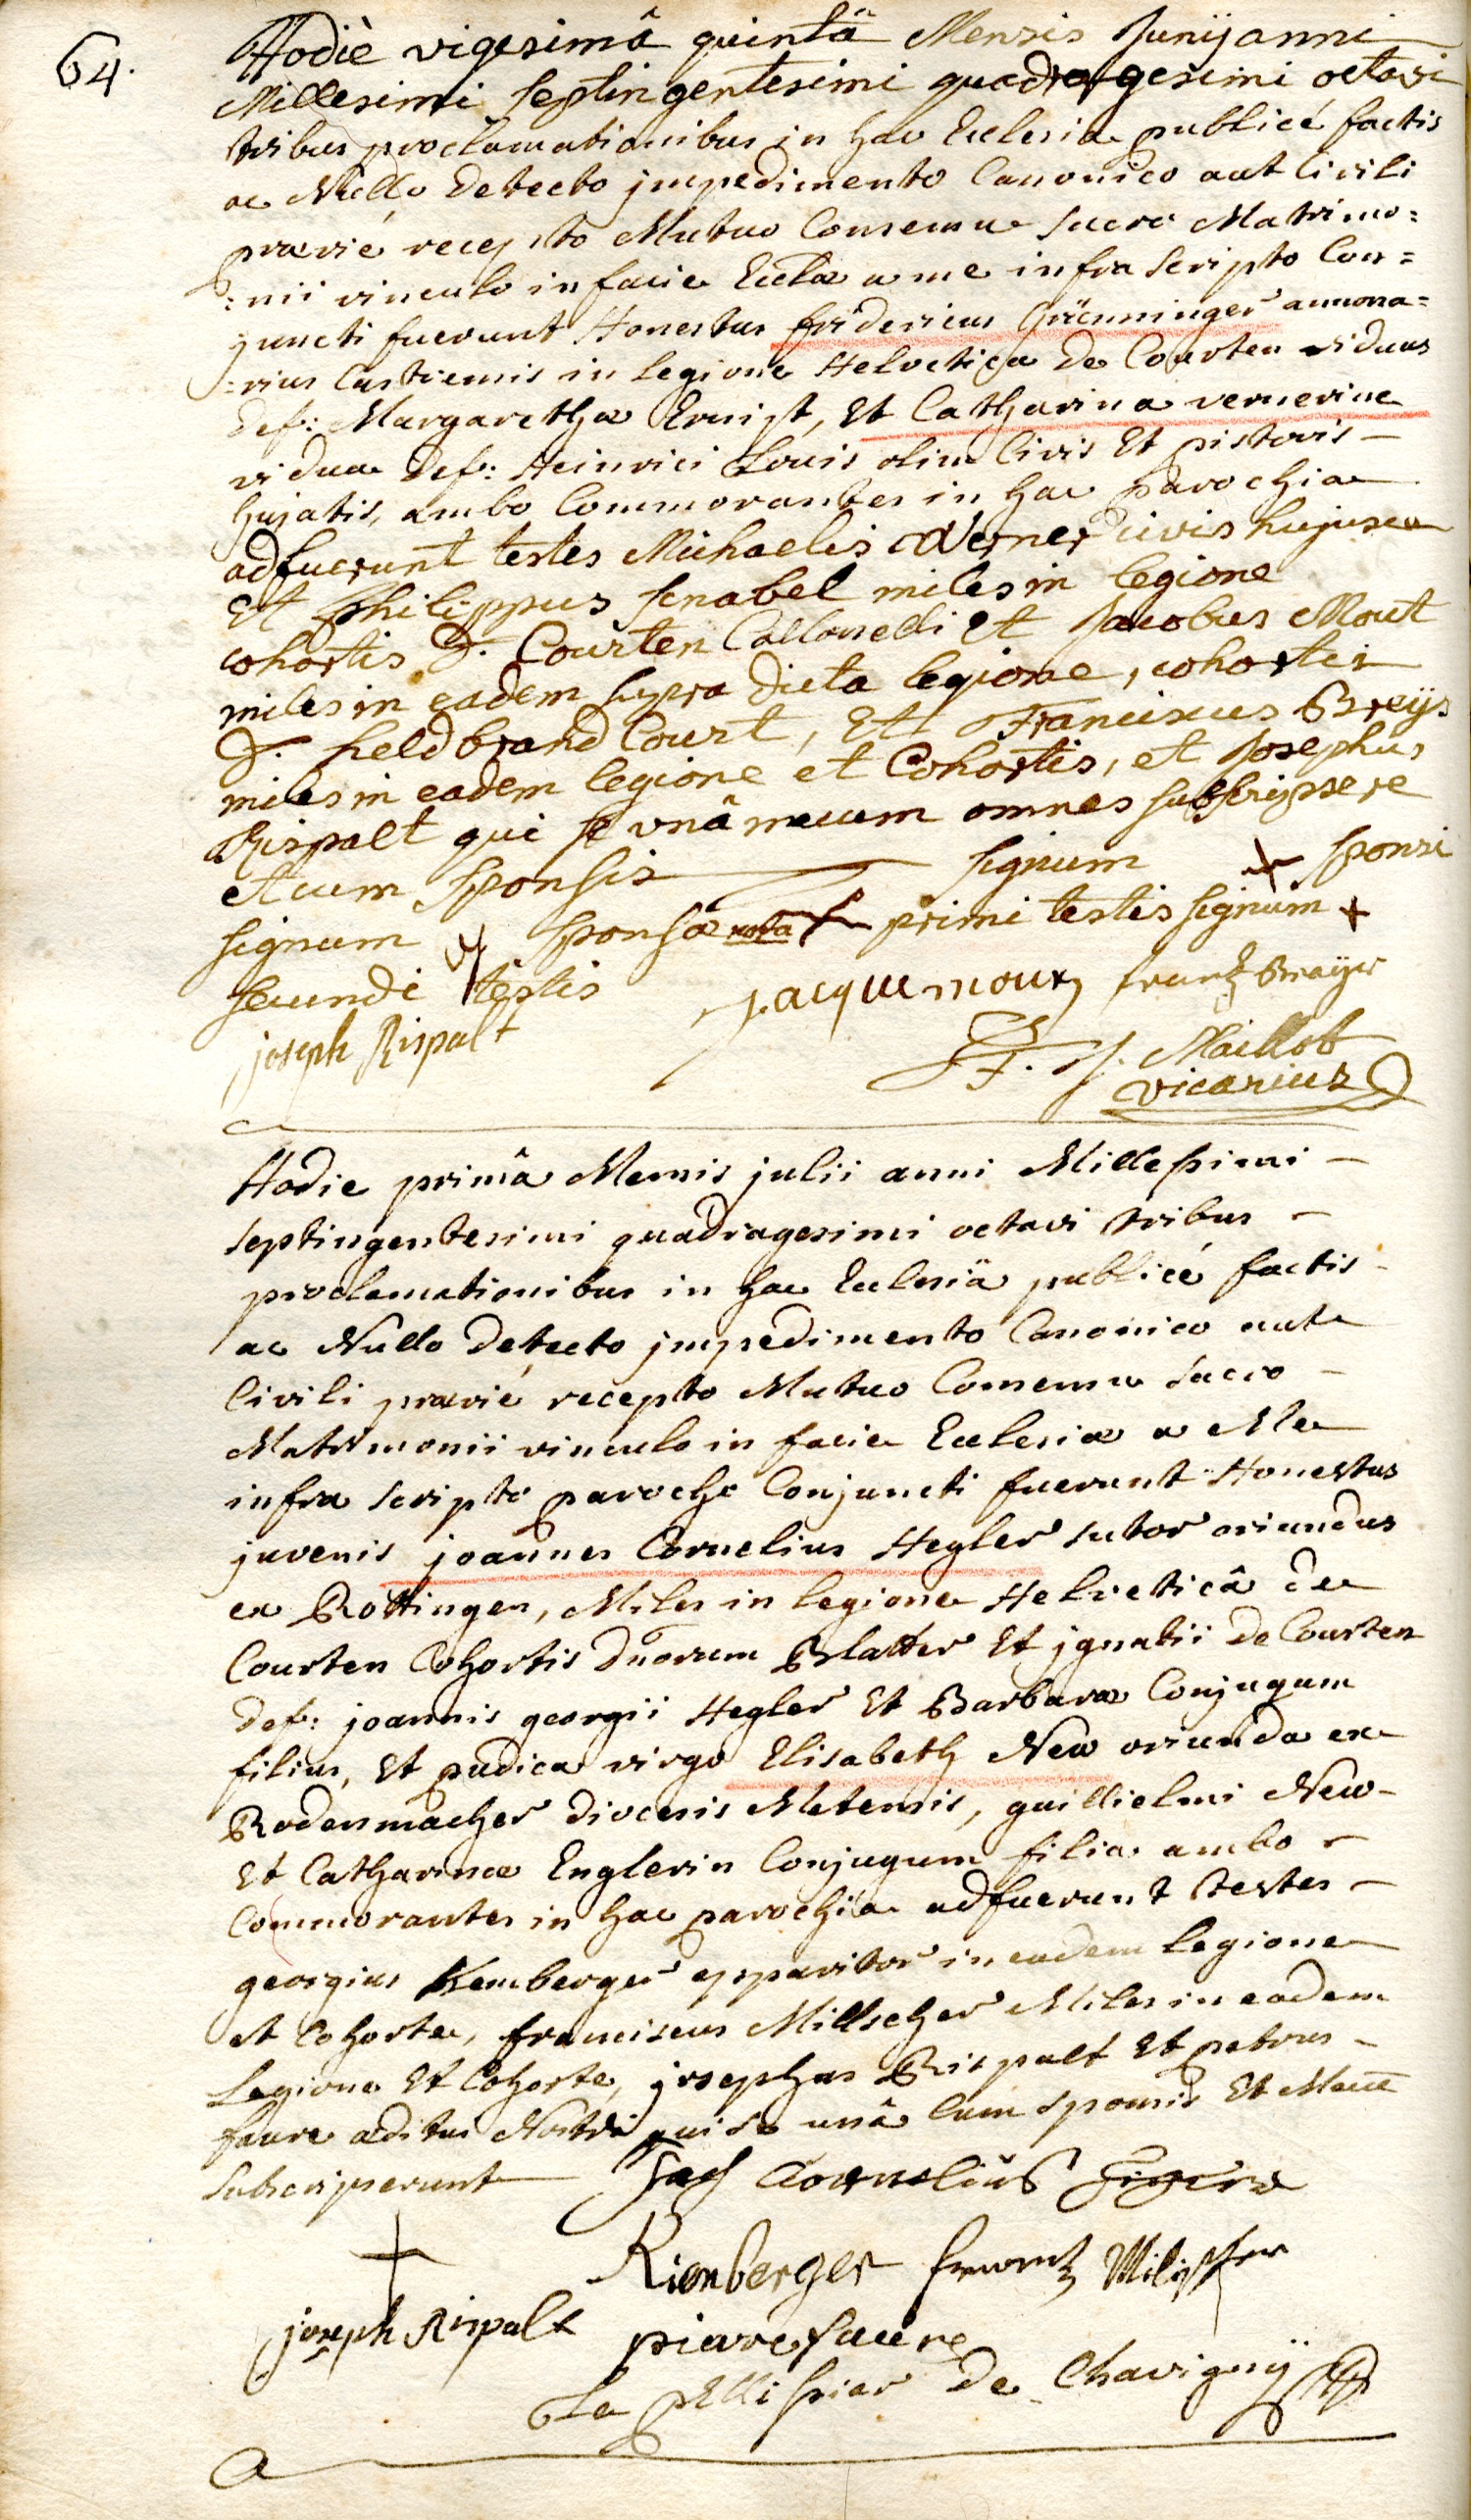 64.
Hodiè vigesimâ quintâ Mensis Junij anni
Millesimi septingentesimi quadragesimi octavi
tribus proclamationibus in hac Ecclesia publicé factis
ac Nullo Detecto jmpedimento Canonico aut Civili
prævié recepto Mutuo Consensu sacro Matrimo=
=nii vinculo in facie Eccl̃æ a me infra scripto Con=
juncti fuerunt Honestus fridericus Grünninger annona=
=rius Castrensis in legione Helvetica De Courten viduus
Def: Margarethæ Ernist, Et Catharina vernerine
vidua Def: Heinrici Louis olim Civis Et pistoris –
hujatis, ambo Commorantes in hac parochia
adfuerunt testes Michaelis Werner civis hujusce
et philippus schnabel miles in legione
cohortis D. Courten Collonelli et Jacobus Mout
miles in eadem supra dicta legione, cohortis
D. heldbrand Court, Et Franciscus Breÿs
miles in eadem legione et Cohortis, et Josephus
Rispalt qui se unâ mecum omnes subscripsere
et cum sponsis signum + sponsi
signum + sponsæ nota + primi testis signum +
secundi testis jacque moux frantz Brayis
joseph Rispalt
F. J. Maillot
vicarius
Hodie primâ Mensis julii anni Millessimi –
septingentesimi quadragesimi octavi tribus –
proclamationibus in hac Ecclesiä publicé factis –
ac Nullo detecto jmpedimento Canonico aut
Civili prævié recepto Mutuo Consensu sacro –
Matrimonii vinculo in facie Ecclesiæ a Me
infra scripto parocho Conjuncti fuerunt Honestus
juvenis joannes Cornelius Hegler sutor oriundus
ex Rottingen, Miles in legione Helveticâ de
Courten Cohortis Duorum Blatter Et jgnatii De Courten
Def: joannis georgii Hegler Et Barbaræ Conjugum
filius, Et pudica virgo Elisabeth New oriunda ex
Rodenmacher Diocesis Metensis, guillielmi New –
Et Catharinæ Englerin Conjugum filia ambo –
Commorantes in hac parochia adfuerunt testes –
georgius Kemberger apparitor in eadem legione
et Cohorte, franciscus Millscher Miles in eadem
Legione Et Cohorte, josephus Rispalt Et petrus –
faure æditui Nostri qui se unâ Cum sponsis Et Mecũ
subscripserunt Joh Cornelius
+
Kienberger frantz
joseph Rispalt piare faure
Le pellissier De Chavignÿ